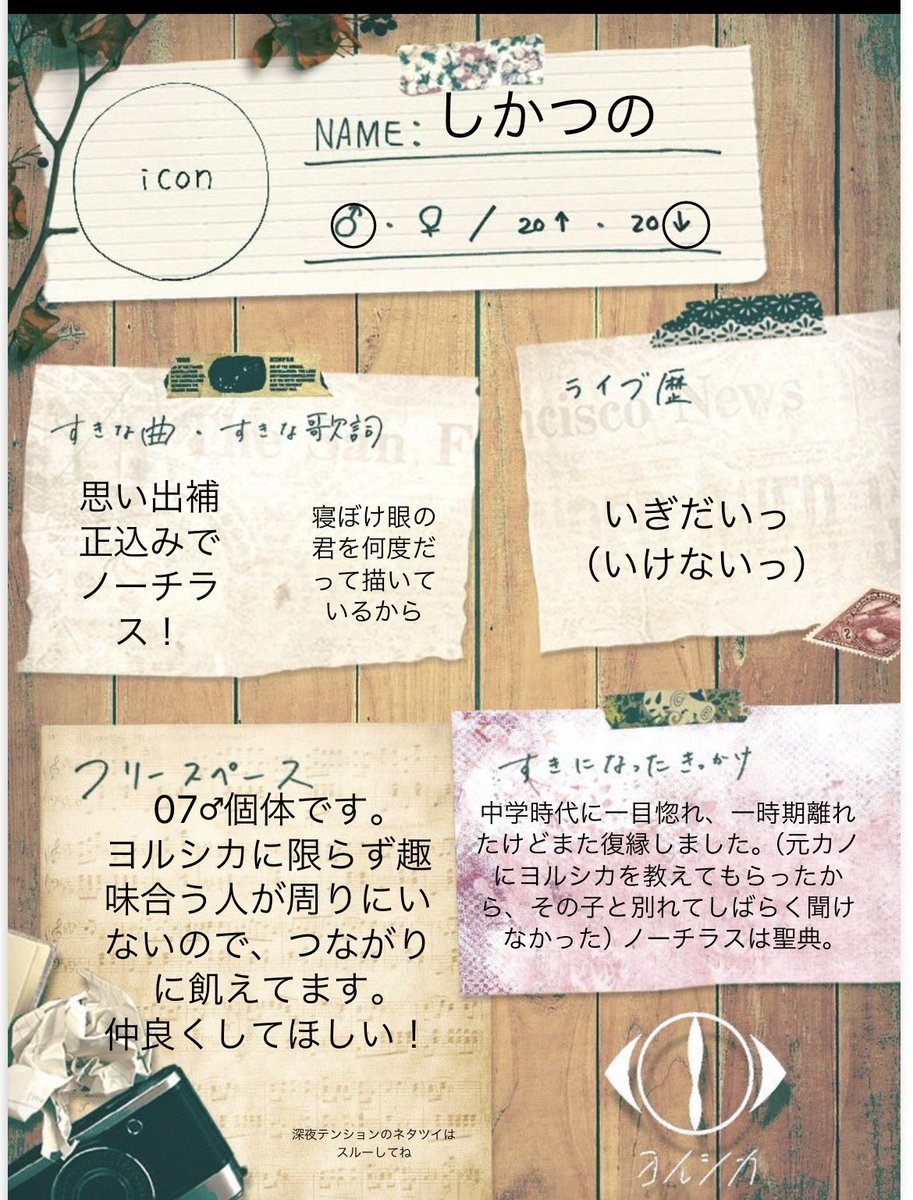 icon
NAME: しかつの
♂・♀ / 20↑・20↓
すきな曲・すきな歌詞
思い出補
正込みで
ノーチラ
ス！
寝ぼけ眼の
君を何度だ
って描いて
いるから
ライブ歴
The San Francisco News
いぎだいっ
（いけないっ）
フリースペース
07♂個体です。
ヨルシカに限らず趣
味合う人が周りにい
ないので、つながり
に飢えてます。
仲良くしてほしい！
深夜テンションのネタツイは
スルーしてね
すきになったきっかけ
中学時代に一目惚れ、一時期離れ
たけどまた復縁しました。（元カノ
にヨルシカを教えてもらったか
ら、その子と別れてしばらく聞け
なかった）ノーチラスは聖典。
ヨルシカ